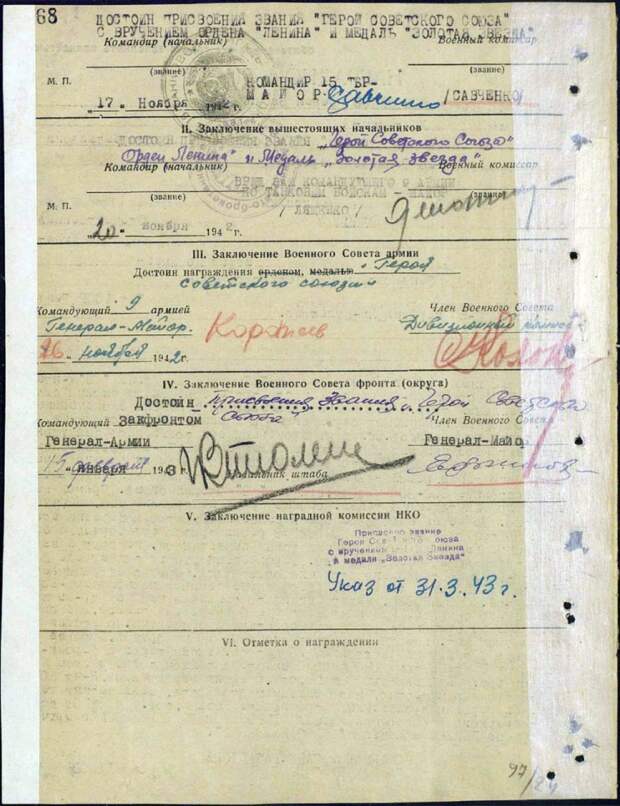 68
ДОСТОИН ПРИСВОЕНИЯ ЗВАНИЯ "ГЕРОЙ СОВЕТСКОГО СОЮЗА"
С ВРУЧЕНИЕМ ОРДЕНА "ЛЕНИНА" И МЕДАЛЬ "ЗОЛОТАЯ ЗВЕЗДА"
Командир (начальник) Военный комиссар
(звание) (звание)
М. П. КОМАНДИР 15 ТБР-
МАЙОР Савченко /САВЧЕНКО/
"17" Ноября 1942
II. Заключение вышестоящих начальников
ДОСТОИН ЗВАНИЯ „Герой Советского Союза"
Орден Ленина" и Медаль „Золотая звезда"
Командир (начальник) Военный комиссар
ВРИД ЗАМ КОМАНДУЮЩЕГО 9 АРМИИ
(звание) ПО ТАНКОВЫМ ВОЙСКАМ - (звание)
М. П.
"20" ноября 1942 г.
III. Заключение Военного Совета армии
Достоин награждения орденом, медалью „Героя
Советского союза"
Командующий 9 армией Член Военного Совета
Генерал-Майор. Коротеев Дивизионный
"26" ноября 1942 г.
IV. Заключение Военного Совета фронта (округа)
Достоин присвоения звания „Герой Советского
Союза"
Командующий Закфронтом Член Военного Совета
Генерал-Армии Генерал-Майор
15 января 1943 Начальник штаба
V. Заключение наградной комиссии НКО
Присвоено звание
Героя Советского Союза
с вручением Ленина
и медали „Золотая Звезда"
Указ от 31.3.43 г.
VI. Отметка о награждении
97/24